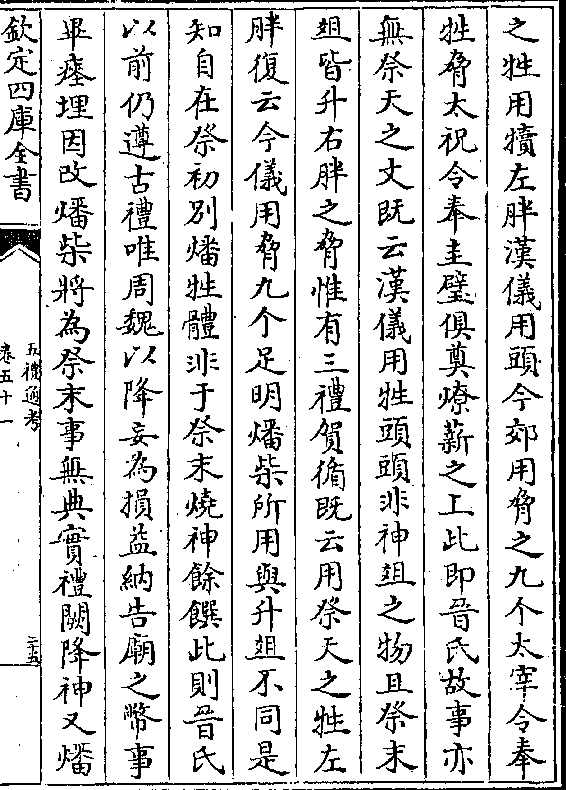 之牲用犢左胖漢儀用頭今郊用脅之九个太宰令奉
牲脅太祝令奉圭璧俱奠燎薪之上此即晉氏故事亦
無祭天之文既云漢儀用牲頭頭非神俎之物且祭末
俎皆升右胖之脅惟有三禮賀循既云用祭天之牲左
胖復云今儀用脅九个足明燔柴所用與升俎不同是
知自在祭初别燔牲體非于祭末燒神餘饌此則晉氏
以前仍遵古禮唯周魏以降妄為損益納告廟之幣事
畢瘗埋因改燔柴將為祭末事無典實禮闕降神又燔
欽定四庫全書
五禮通考
卷五十一
二十五